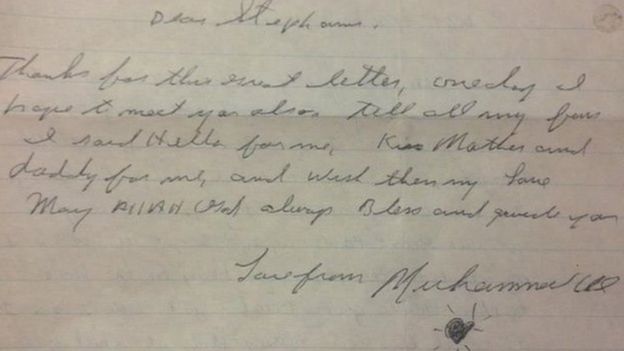 Dear Stephanie.
Thanks for the sweet letter, one day I
hope to meet you also. tell all my fans
I said Hello for me, Kiss Mother and
daddy for me, and wish them my love
May Allah God always Bless and guide you
Love from Muhammad Ali